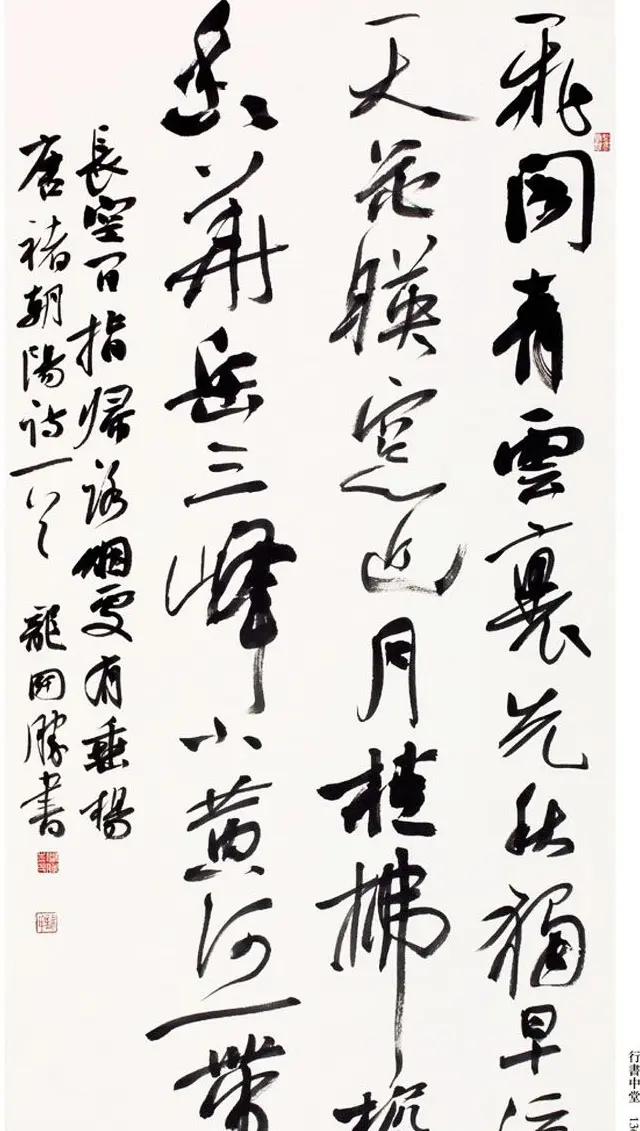 飛閣青雲裏先秋獨早
天花暎窓近月桂拂
香華岳三峰小黄河一帶
長空間指歸路烟處有垂楊
唐褚朝陽诗一首 龍開勝書
行書中堂